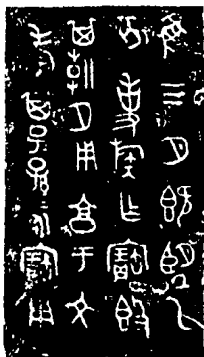 隹三月既望乙
亥事族乍寶簋
其朝夕用享于文
考其子孫永寶用